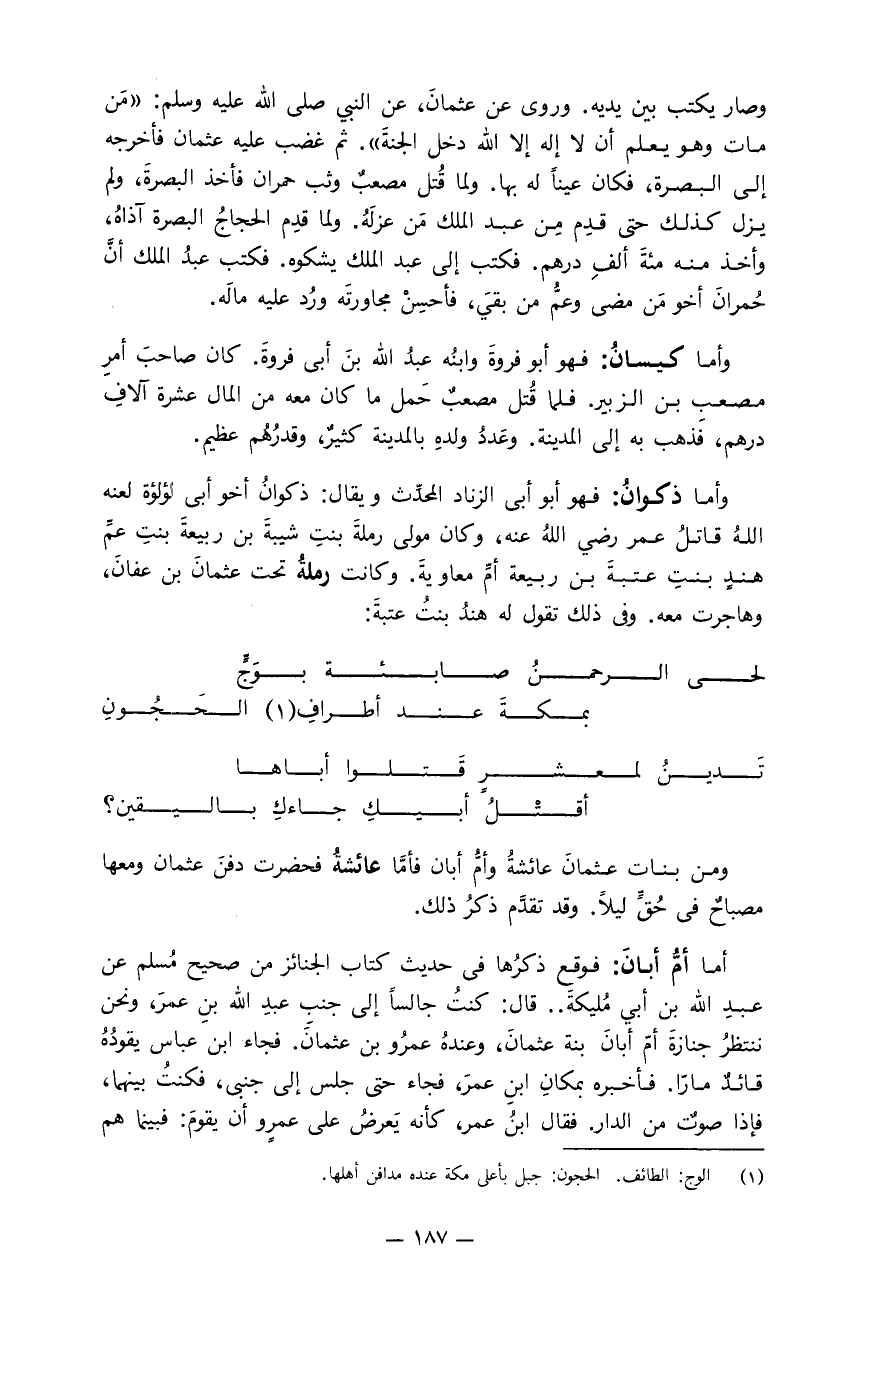 وصار يكتب بين يديه. وروى عن عثمانَ، عن النبي صلى الله عليه وسلم: «مَن
مات وهو يعلم أن لا إله إلا الله دخل الجنةَ». ثم غضب عليه عثمان فأخرجه
إلى البصرة، فكان عيناً له بها. ولما قُتل مصعبٌ وثب حمران فأخذ البصرةَ، ولم
يزل كذلك حتى قدِم مِن عبد الملك مَن عزلَهُ. ولما قدِم الحجاجُ البصرة آذاهُ،
وأخذ منه مئةَ ألفِ درهم. فكتب إلى عبد الملك يشكوه. فكتب عبدُ الملك أنَّ
حُمرانَ أخو مَن مضى وعمُّ من بقيَ، فأحسِنْ مجاورتَه ورُد عليه مالَه.
وأما كيسانُ: فهو أبو فروةَ وابنُه عبدُ الله بنَ أبى فروةَ. كان صاحبَ أمرِ
مصعبِ بن الزبير. فلما قُتل مصعبٌ حَمل ما كان معه من المال عشرة آلافِ
درهم، فذهب به إلى المدينة. وعَددُ ولدهِ بالمدينة كثيرٌ، وقدرُهُم عظيم.
وأما ذكوانُ: فهو أبو أبى الزناد المحدِّث ويقال: ذكوانُ أخو أبى لؤلؤة لعنه
اللهُ قاتلُ عمر رضي اللهُ عنه، وكان مولى رملةَ بنتِ شيبةَ بن ربيعةَ بنتِ عمِّ
هندٍ بنتِ عتبةَ بن ربيعة أمِّ معاويةَ. وكانت رملةُ تحت عثمانَ بن عفانَ،
وهاجرت معه. وفى ذلك تقول له هندُ بنتُ عتبةَ:
لحى الرحمنُ صابئة بوَجٍّ
بمكةَ عند أطرافِ(١) الحَجُونِ
تَدينُ لمعشرٍ قَتلوا أباها
أقتْلُ أبيكِ جاءكِ باليقين؟
ومن بنات عثمانَ عائشةُ وأمُّ أبان فأمَّا عائشةُ فحضرت دفنَ عثمان ومعها
مصباحٌ فى حُقٍّ ليلاً. وقد تقدَّم ذكرُ ذلك.
أما أمُّ أبانَ: فوقع ذكرُها فى حديث كتاب الجنائز من صحيح مُسلم عن
عبدِ الله بن أبي مُليكةَ.. قال: كنتُ جالساً إلى جنبِ عبدِ الله بنِ عمرَ، ونحن
ننتظرُ جنازةَ أمّ أبانَ بنة عثمانَ، وعندهُ عمرُو بن عثمانَ. فجاء ابن عباس يقودُهُ
قائدٌ مارًا. فأخبره بمكانِ ابنِ عمرَ، فجاء حتى جلس إلى جنبى، فكنتُ بينها،
فإذا صوتٌ من الدار. فقال ابنُ عمر، كأنه يَعرضُ على عمرٍو أن يقومَ: فبينما هم
(١) الوج: الطائف. الحجون: جبل بأعلى مكة عنده مدافن أهلها.
— ١٨٧ —